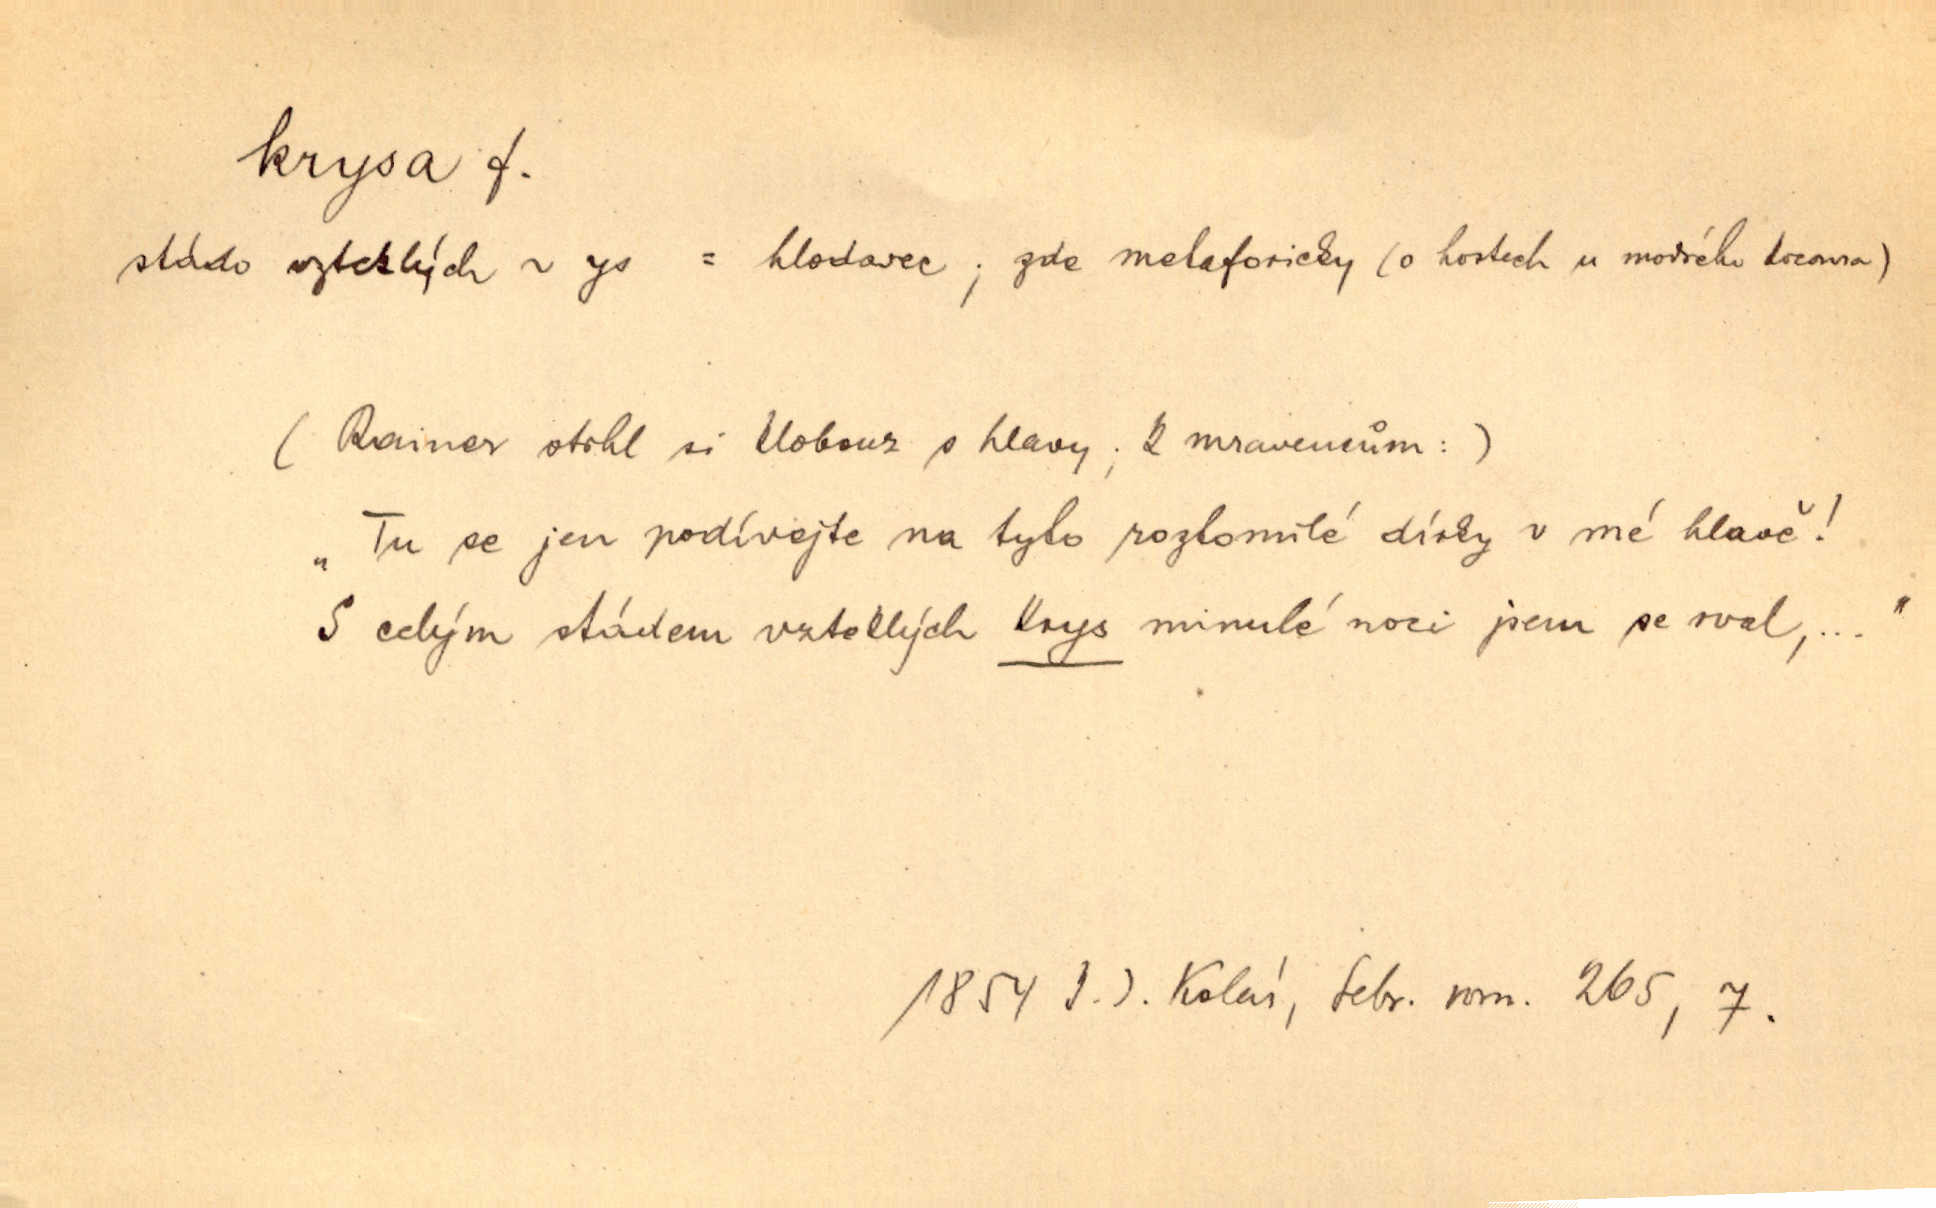 krysa f.
stádo vzteklých ~ ys = hlodavec ; zde metaforicky (o hostech u modrého kocoura)
( Rainer strhl si klobouk s hlavy ; k mravencům : )
„ Tu se jen podívejte na tyto roztomilé dírky v mé hlavě !
S celým stádem vzteklých krys minulé noci jsem se rval, ... "
1854 J. J. Kolár, Sebr. rom. 265, 7.